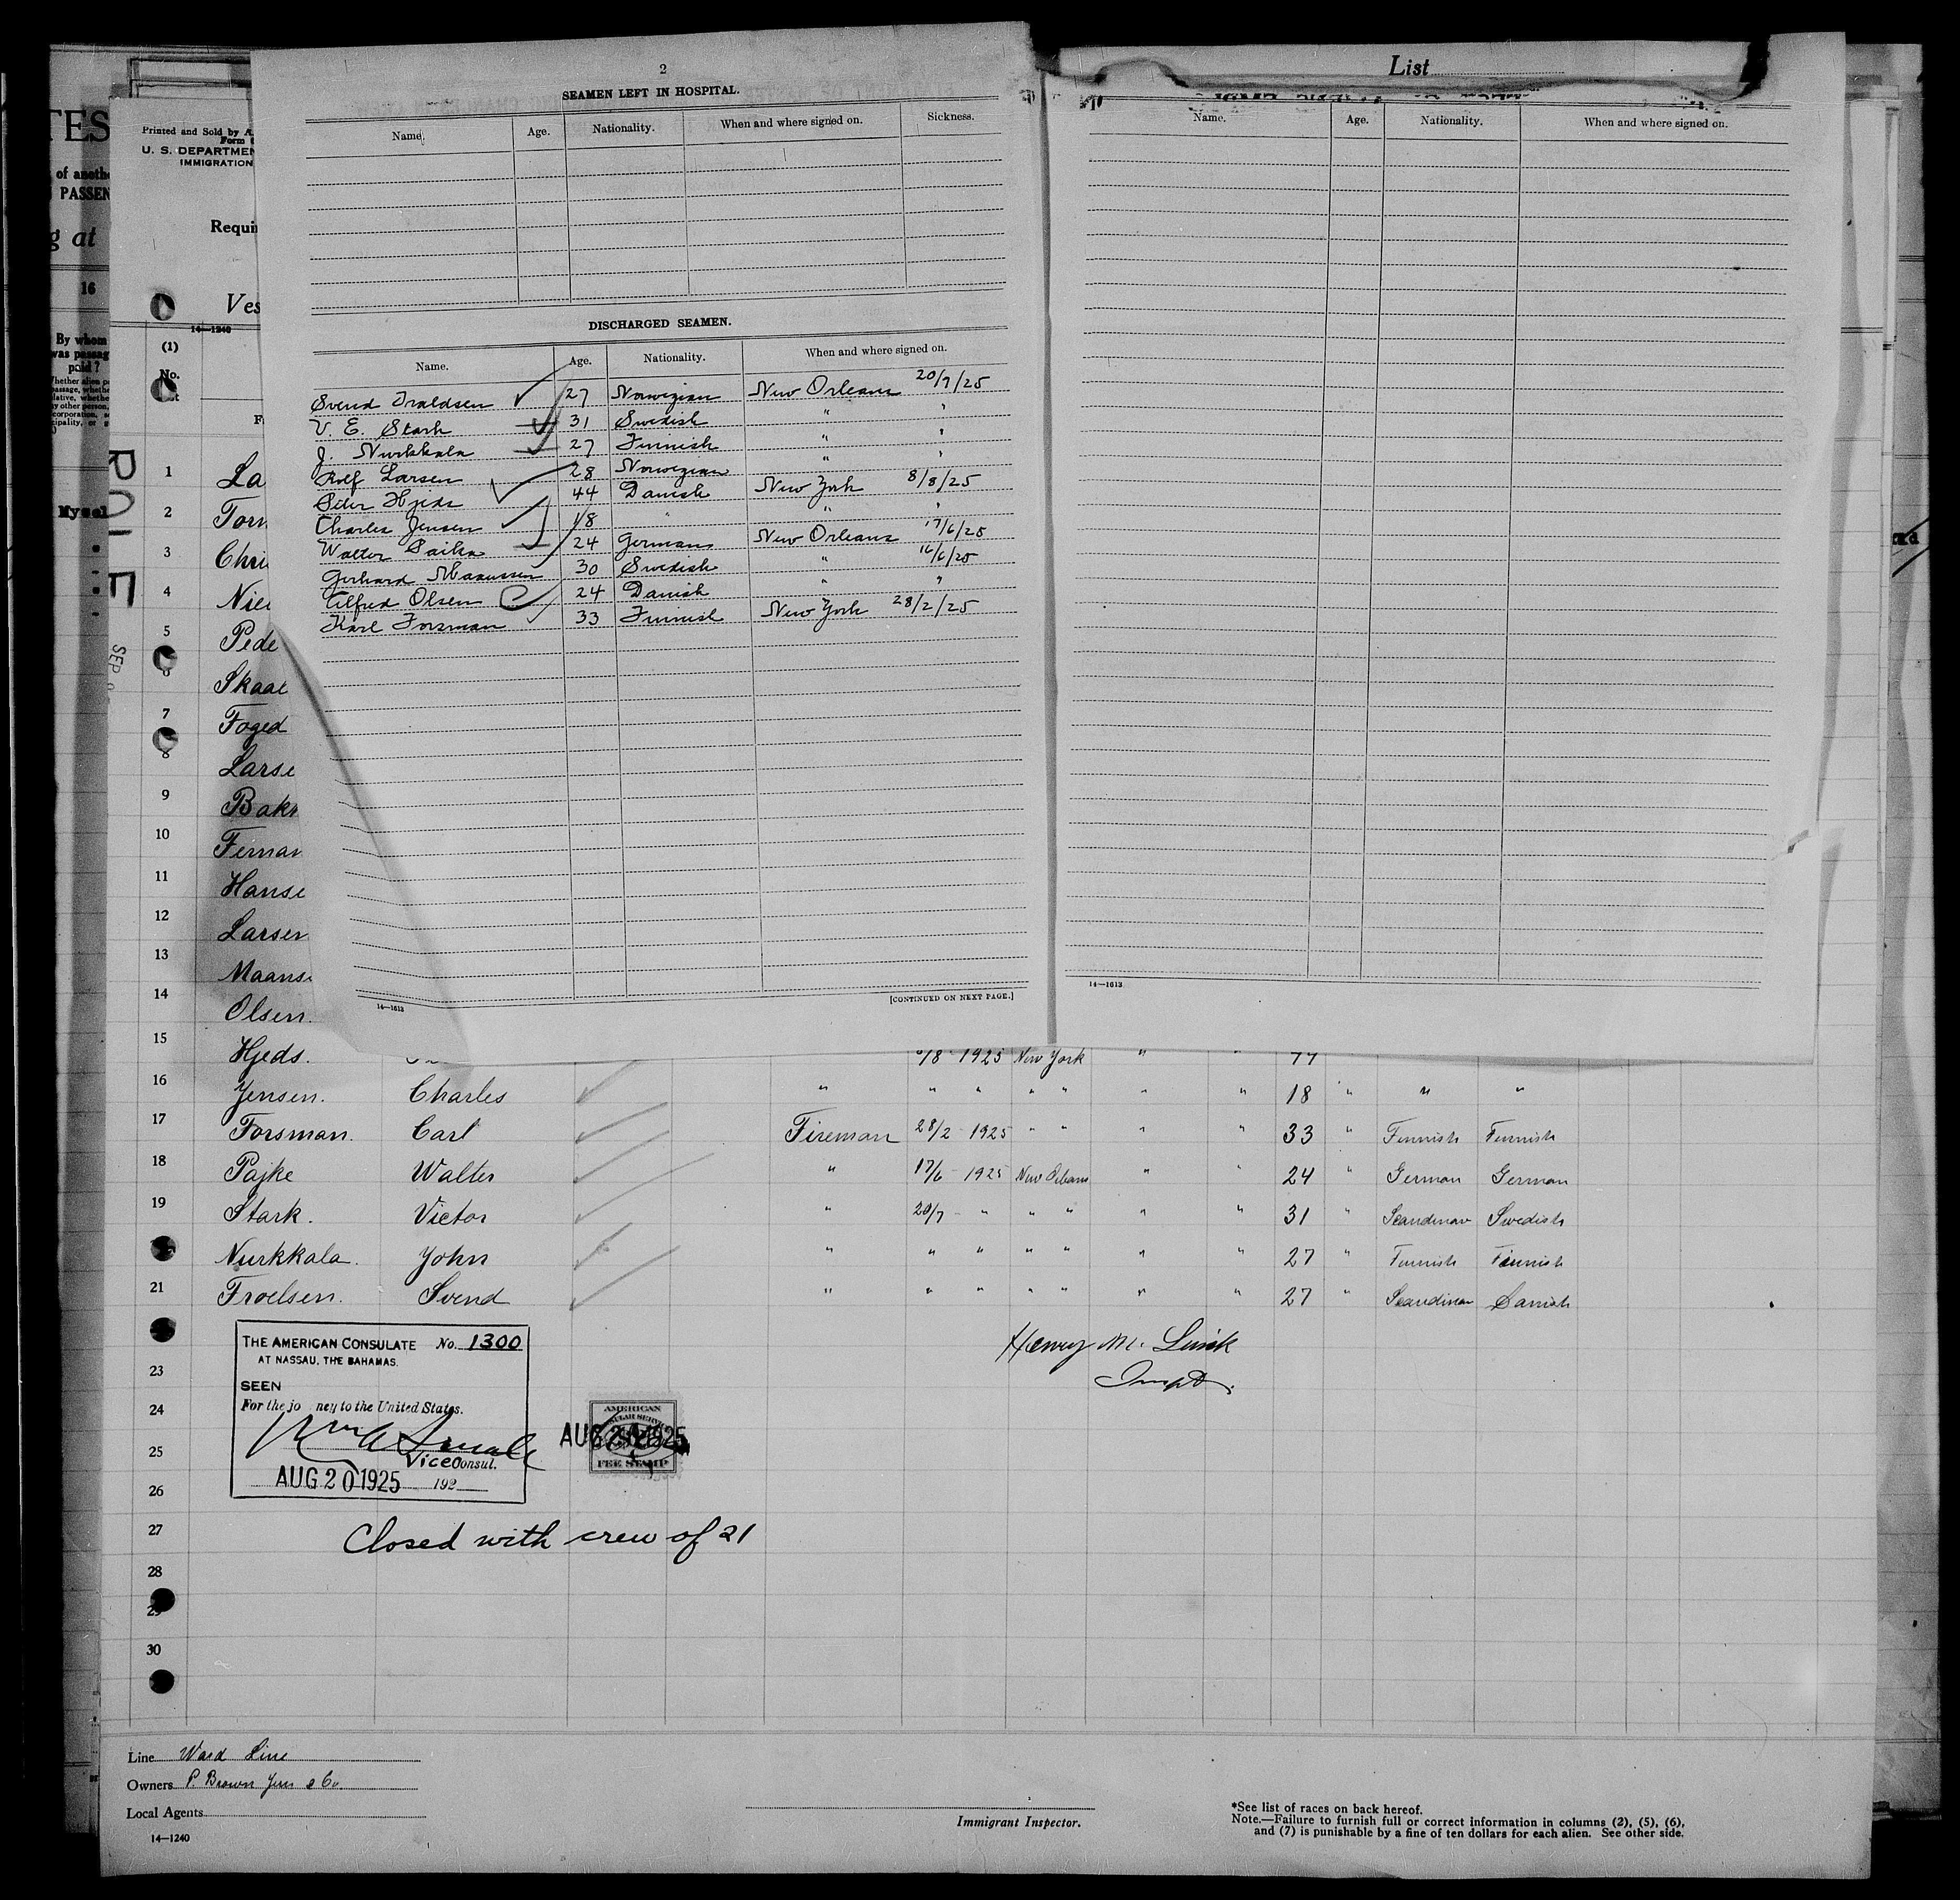 2
SEAMEN LEFT IN HOSPITAL.
Name. Age. Nationality. When and where signed on. Sickness.
DISCHARGED SEAMEN.
Name. Age. Nationality. When and where signed on.
Svend 27 Norwegian New Orleans 20/7/25
V. E. Stark 31 Swedish " "
J. Nurkkala 27 Finnish " "
Rolf Larsen 28 Norwegian " "
Peter Hjeds 44 Danish New York 8/8/25
Charles Jensen 18 " " "
Walter 24 Germans New Orleans 17/6/25
Gerhard 30 Swedish " 16/6/25
Alfred Olsen 24 Danish " "
Karl Forsman 33 Finnish New York 28/2/25
14—1613
[CONTINUED ON NEXT PAGE.]
List
Name. Age. Nationality. When and where signed on.
14—1613
TES
of anothe
PASSEN
g at
16
By whom
was passag
paid?
Mysel
Printed and Sold by A.
Form
U. S. DEPARTMEN
IMMIGRATION
Requir
Ves
14—1240
(1)
No.
F
SEP
1 La
2 Torn
3 Chri
4 Niel
5 Pede
6 Skaar
7 Foged
8 Larse
9 Bakr
10 Fernan
11 Hanse
12 Larsen
13 Maanss
14 Olsen.
15 Hjeds. 8/8 1925 New York " " 44
16 Jensen. Charles " " " " " " " 18 " " "
17 Forsman. Carl Fireman 28/2 1925 " " " " 33 " Finnish Finnish
18 Pajke Walter " 17/6 1925 New Orleans " " 24 " German German
19 Stark. Victor " 20/7 " " " " " 31 " Scandinav Swedish
Nurkkala. John " " " " " " " 27 " Finnish Finnish
21 Froelsen. Svend " " " " " " " 27 " Scandinav Danish
THE AMERICAN CONSULATE No. 1300
AT NASSAU, THE BAHAMAS.
SEEN
For the jo ney to the United States.
Vice Consul.
AUG 20 1925 192
AMERICAN
CONSULAR SERVICE
AUG 20 1925
FEE STAMP
Henry M.
Inspt.
23
24
25
26
27
28
29
30
Closed with crew of 21
Line Ward Line
Owners P. Brown Jun & Co.
Local Agents
14—1240
Immigrant Inspector.
*See list of races on back hereof.
Note.—Failure to furnish full or correct information in columns (2), (5), (6),
and (7) is punishable by a fine of ten dollars for each alien. See other side.